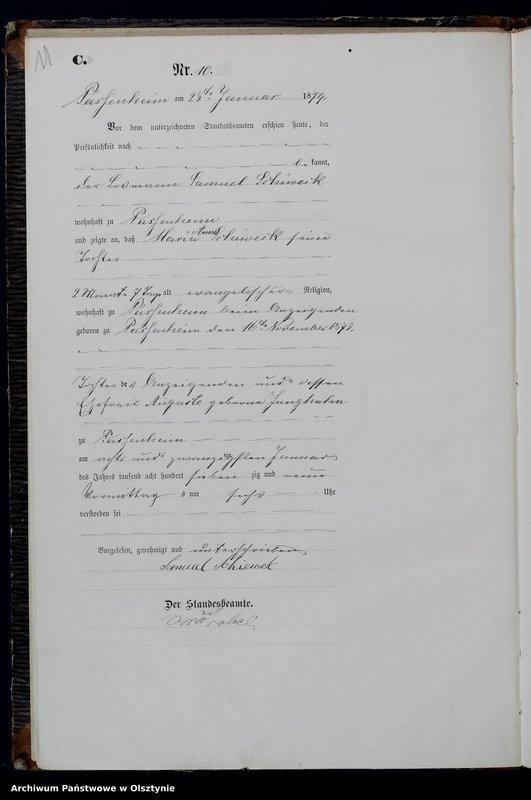 11
C.
Nr. 10.
Passenheim am 28ten Januar 1879.
Vor dem unterzeichneten Standesbeamten erschien heute, der
Persönlichkeit nach
be kannt,
der Losmann Samuel Schiweck
wohnhaft zu Passenheim
und zeigte an, daß Maria Anna Schiweck seine
Tochter
2 Monate 7 Tage alt evangelischer Religion,
wohnhaft zu Passenheim beim Anzeigenden
geboren zu Passenheim den 16ten November 1878.
Tochter des Anzeigenden und dessen
Ehefrau Auguste geborene
zu Passenheim
am acht und zwanzigsten Januar
des Jahres tausend acht hundert sieben zig und neun
Vormittag s um sechs Uhr
verstorben sei
Vorgelesen, genehmigt und unterschrieben
Samuel Schiweck
Der Standesbeamte.
Archiwum Państwowe w Olsztynie